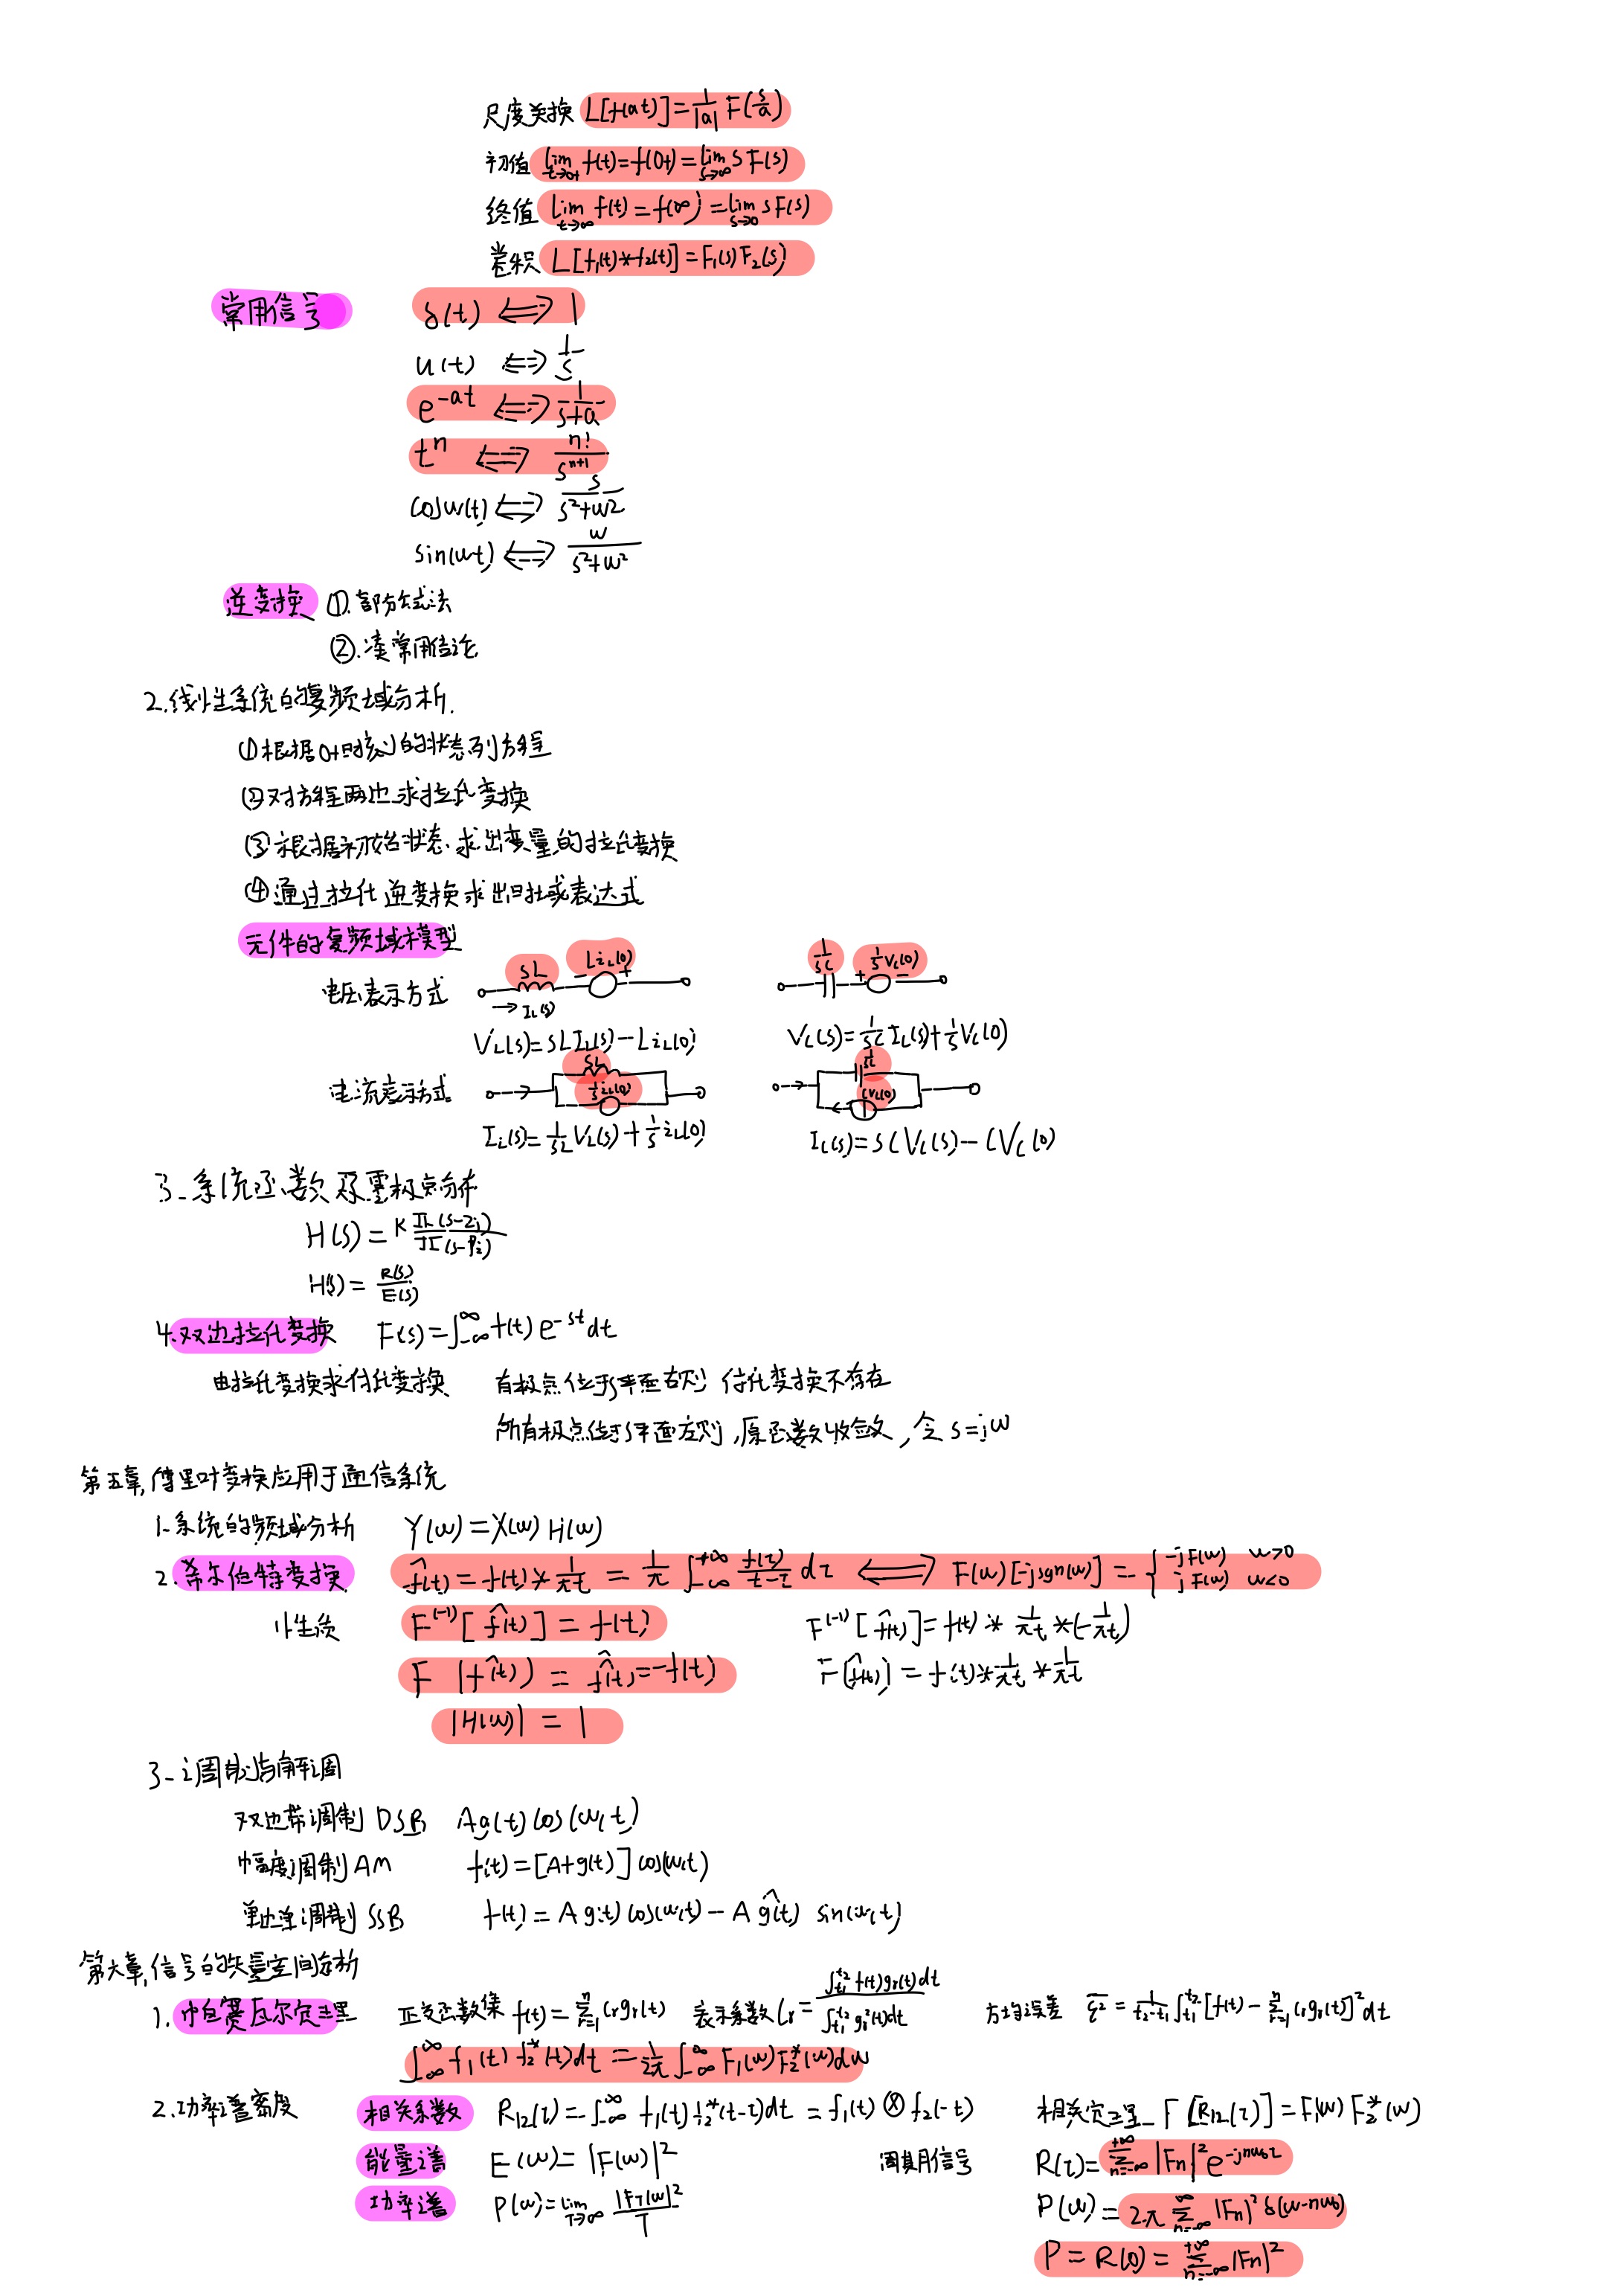 尺度变换 L[f(at)]=1/|a| F(s/a)
初值 lim t→0+ f(t)=f(0+)=lim s→∞ sF(s)
终值 lim t→∞ f(t)=f(∞)=lim s→0 sF(s)
卷积 L[f1(t)*f2(t)]=F1(s)F2(s)
常用信号 δ(t) ⟺ 1
u(t) ⟺ 1/s
e^-at ⟺ 1/(s+a)
t^n ⟺ n!/s^(n+1)
cosw(t) ⟺ s/(s²+w²)
sin(wt) ⟺ w/(s²+w²)
逆变换 ①.部分分式法
②.凑常用结论
2.线性系统的复频域分析.
①根据0+时刻的状态列方程
②对方程两边求拉氏变换
③根据初始状态求出变量的拉氏变换
④通过拉氏逆变换求出时域表达式
元件的复频域模型
sL LiL(0) 1/sC 1/s Vc(0)
电压表示方式 - + + -
→ IL(s)
VL(s)=sLIL(s)-LiL(0) Vc(s)=1/sC Ic(s)+1/s Vc(0)
sL 1/sC
电流表示方式 1/s iL(0) CVc(0)
IL(s)=1/sL VL(s)+1/s iL(0) Ic(s)=sCVc(s)-CVc(0)
3.系统函数及零极点分布
H(s)=K Π(s-Zj)/Π(s-Pi)
H(s)=R(s)/E(s)
4.双边拉氏变换 F(s)=∫-∞^∞ f(t)e^-st dt
由拉氏变换求付氏变换 有极点位于s平面右侧 付氏变换不存在
所有极点位于s平面左侧,原函数收敛,令s=jw
第五章,傅里叶变换应用于通信系统
1.系统的频域分析 Y(w)=X(w)H(w)
2.希尔伯特变换 f̂(t)=f(t)*1/πt=1/π ∫-∞^+∞ f(τ)/(t-τ) dτ ⟺ F(w)[-jsgn(w)]={-jF(w) w>0 jF(w) w<0
性质 F^(-1)[f̂(t)]=f(t) F^(-1)[f̂(t)]=f(t)*1/πt*(-1/πt)
F[f̂(t)]=f̂(t)=-f(t) F[f̂(t)]=f(t)*1/πt*1/πt
|H(w)|=1
3.调制与解调
双边带调制DSB Ag(t)cos(wct)
幅度调制AM f(t)=[A+g(t)]cos(wct)
单边带调制SSB f(t)=Ag(t)cos(wct)-Aĝ(t) sin(wct)
第六章,信号的矢量空间分析
1.帕塞瓦尔定理 正交函数集 f(t)=Σr=1^n Crgr(t) 表示系数Cr=∫t1^t2 f(t)gr(t)dt/∫t1^t2 gr²(t)dt 方均误差 ε²=1/(t2-t1)∫t1^t2[f(t)-Σr=1^n Crgr(t)]²dt
∫-∞^∞ f1(t)f2*(t)dt=1/2π ∫-∞^∞ F1(w)F2*(w)dw
2.功率谱密度 相关系数 R12(τ)=∫-∞^∞ f1(t)f2*(t-τ)dt=f1(t)⊗f2(-t) 相关定理 F[R12(τ)]=F1(w)F2*(w)
能量谱 E(w)=|F(w)|² 周期信号 R(τ)=Σn=-∞^+∞ |Fn|²e^-jnw0τ
功率谱 P(w)=lim T→∞ |FT(w)|²/T P(w)=2πΣn=-∞^∞ |Fn|²δ(w-nw0)
P=R(0)=Σn=-∞^+∞ |Fn|²